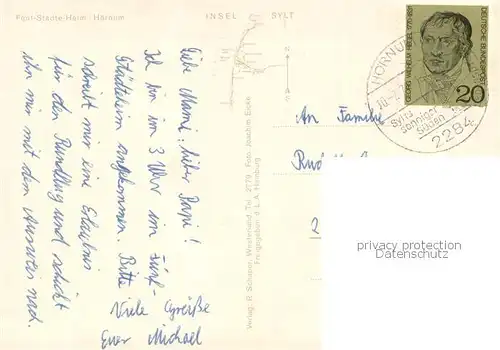 Fünf-Städte-Heim Hörnum
INSEL SYLT
Liebe Mami, lieber Papi!
Ich bin im 3 Uhr im Fünf-
Städteheim angekommen. Bitte
schreibt mir eine Erlaubnis
für den Rundflug und schickt
ihn mir mit dem Ausweis nach.
Viele Grüße
Euer Michael
Verlag R. Schaper, Westerland, Tel. 2179 Foto Joachim Eigen
Freigegeben d. L.A. Hamburg
An Familie
GEORG WILHELM FRIEDR. HEGEL 1770-1831
DEUTSCHE BUNDESPOST
20
HÖRNUM
Sylts
sonniger
Süden
2284
2
privacy protection
Datenschutz